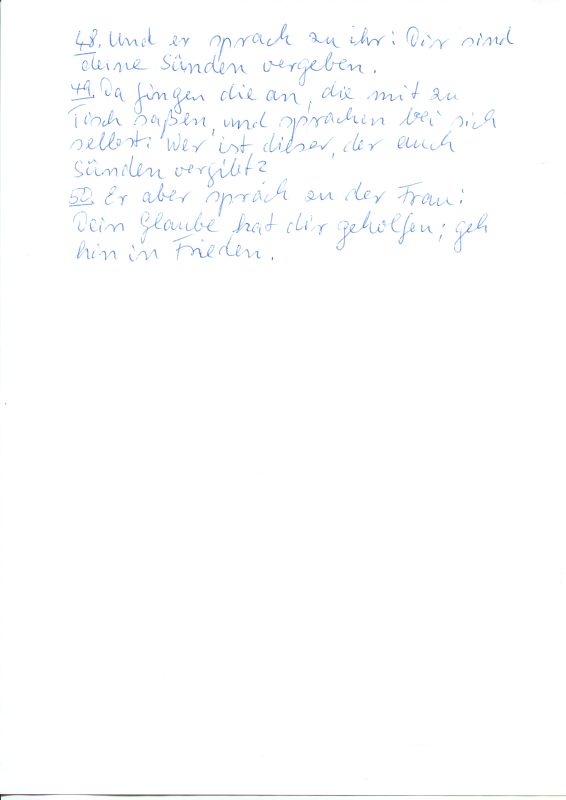 48. Und er sprach zu ihr: Dir sind
deine Sünden vergeben.
49. Da fingen die an, die mit zu
Tisch saßen, und sprachen bei sich
selbst: Wer ist dieser, der auch
Sünden vergibt?
50. Er aber sprach zu der Frau:
Dein Glaube hat dir geholfen; geh
hin in Frieden.